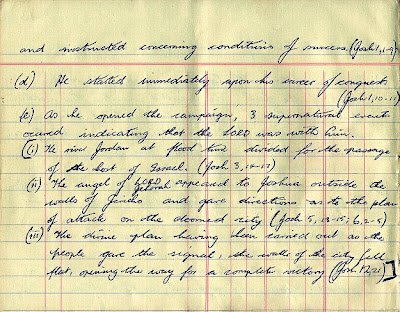 and instructed concerning conditions of success. (Josh 1, 1-9)
(d) He started immediately upon his career of conquest
(Josh 1, 10-11)
(e) As he opened the campaign, 3 supernatural events
occured indicating that the LORD was with him.
(i) The river Jordan at flood time divided for the passage
of the host of Israel. (Josh 3, 14-17)
(ii) The angel of GOD appeared to Joshua outside the
walls of Jericho and gave directions as to the plan
of attack on the doomed city (Josh 5, 13-15; 6, 2-5)
(iii) The divine plan having been carried out as the
people gave the signal, the walls of the city fell
flat, opening the way for a complete victory (Josh